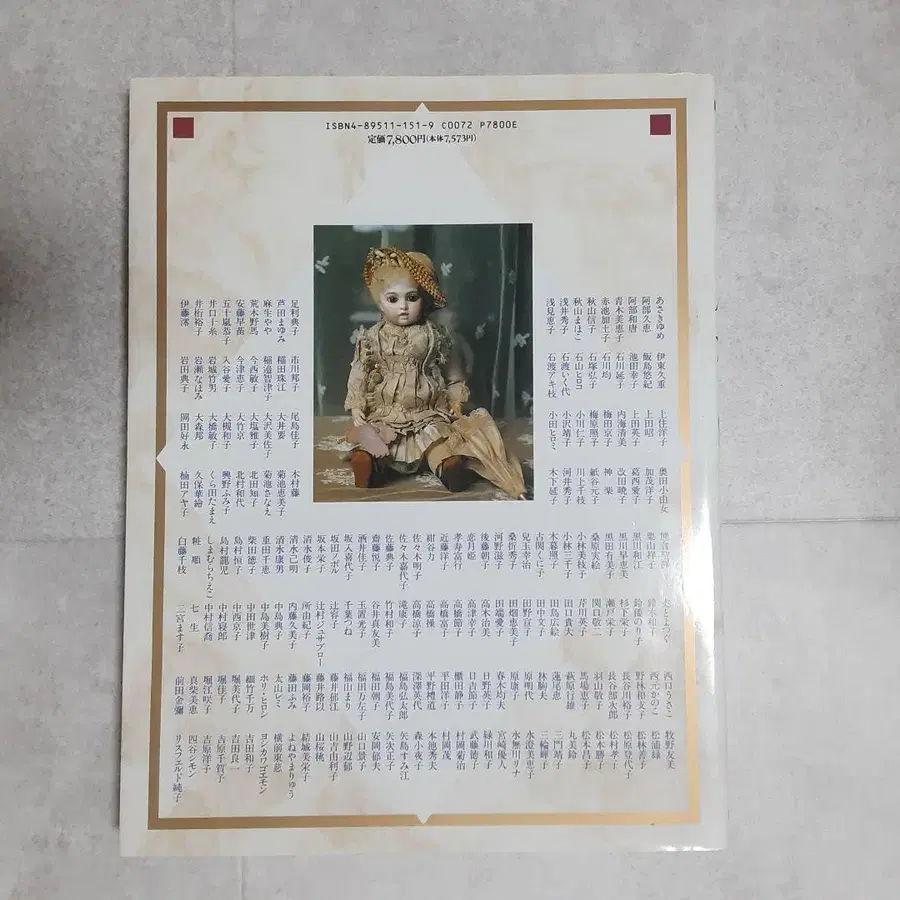 ISBN4-89511-151-9 C0072 P7800E
定価7,800円(本体7,573円)
あさきゆめ
阿部久恵
阿部和唐
青木美恵子
赤池加土子
秋山信子
秋山まほこ
浅井秀子
浅見恵子
足利典子
芦田まゆみ
麻生やや
荒木野馬
安藤早苗
五十嵐恭子
井口十糸
井桁裕子
伊藤澪
伊東久重
飯島悠紀
池田幸子
石川延子
石川均
石塚弘子
石山ヒロコ
石渡いく代
石渡アキ枝
市川邦子
稲田珠江
稲邉智津子
今西敏子
今津恵子
入谷愛子
岩城竹男
岩瀬なほみ
岩田典子
上住洋子
上田昭
上田英子
内海清美
梅田京子
梅原照子
小川仁子
小沢靖子
小田ヒロミ
尾島佳子
大井要
大沢美佐子
大塩雅子
大竹京
大槻和子
大橋敏子
大森邦
岡田好永
奥田小由女
加茂洋子
葛西愛子
改田曉子
神栄
紙谷元子
川上千枝
河井秀子
木下延子
木村藤
菊池恵美子
菊池さなえ
北田知子
北村和代
興野ふみ子
くら田たまえ
久保華繪
楠田アヤ子
栗山祥子
黒川和江
黒川早恵美
黒田有美子
桑原実絵
小林美枝子
小林三三子
木暮照子
古閑くに子
兒玉幸治
桑折秀子
河野滋子
後藤朝子
恋月姫
孝寿富行
近藤洋子
紺谷力
佐々木明子
佐々木嘉代子
佐藤典子
斎藤悦子
酒井佳子
坂入喜代子
坂本栄子
清水俊子
清水己明
清水康男
重田千恵
柴田徳子
島村恒子
島村龍児
しまむらちえこ
粧順
白藤千枝
鈴木和子
鈴掛のり子
杉下松子
瀬戸栄子
関口敬二
芹川英子
田口貴大
田島広絵
田中文子
田野宣子
田畑恵美子
田端愛子
高木治美
高津幸子
高橋節子
高橋富子
高橋操
高橋涼子
滝康子
竹村和子
谷井真友美
玉置光子
千葉つね
辻容子
辻村ジュサブロー
所由紀子
内藤久美子
中島典子
中島美樹子
中田世津
中西京子
中村寝郎
中村信喬
七生
二宮ます子
西口うさこ
西元のこ
野林和支子
長谷川裕子
長谷部次郎
羽山敬子
馬場恵子
萩原行雄
蓮尾恵
林駒夫
原明代
原康子
春木均夫
日野英子
日吉節子
櫃田靜子
平田洋子
平野禮道
深澤英代
福島弘太郎
福島美代子
福田朋子
福田万左子
福山まり
藤井郁江
藤井路以
藤岡裕子
藤田ふみ
太山レミ
ホリ・ヒロシ
細竹千万
堀美代子
堀佳子
堀江咲子
真柴美恵
前田金彌
牧野友美
松浦緑
松林善子
松原登代子
松村孝子
松本勝子
松本昌子
丸美鈴
三門靖子
三輪輝子
水澄美恵子
水無月リナ
宮崎優人
緑川和子
武藤徳子
村岡菊治
村岡茂
本池秀夫
森小夜子
矢島すみ江
矢次正子
安岡郁夫
山口景子
山野辺郁
山吉由利子
山桜桃
結城美栄子
よねやまりゅう
横前東惹
ヨシカワゴエモン
吉田和子
吉田良一
吉原千賀子
吉原洋子
四谷シモン
リスフェルド純子